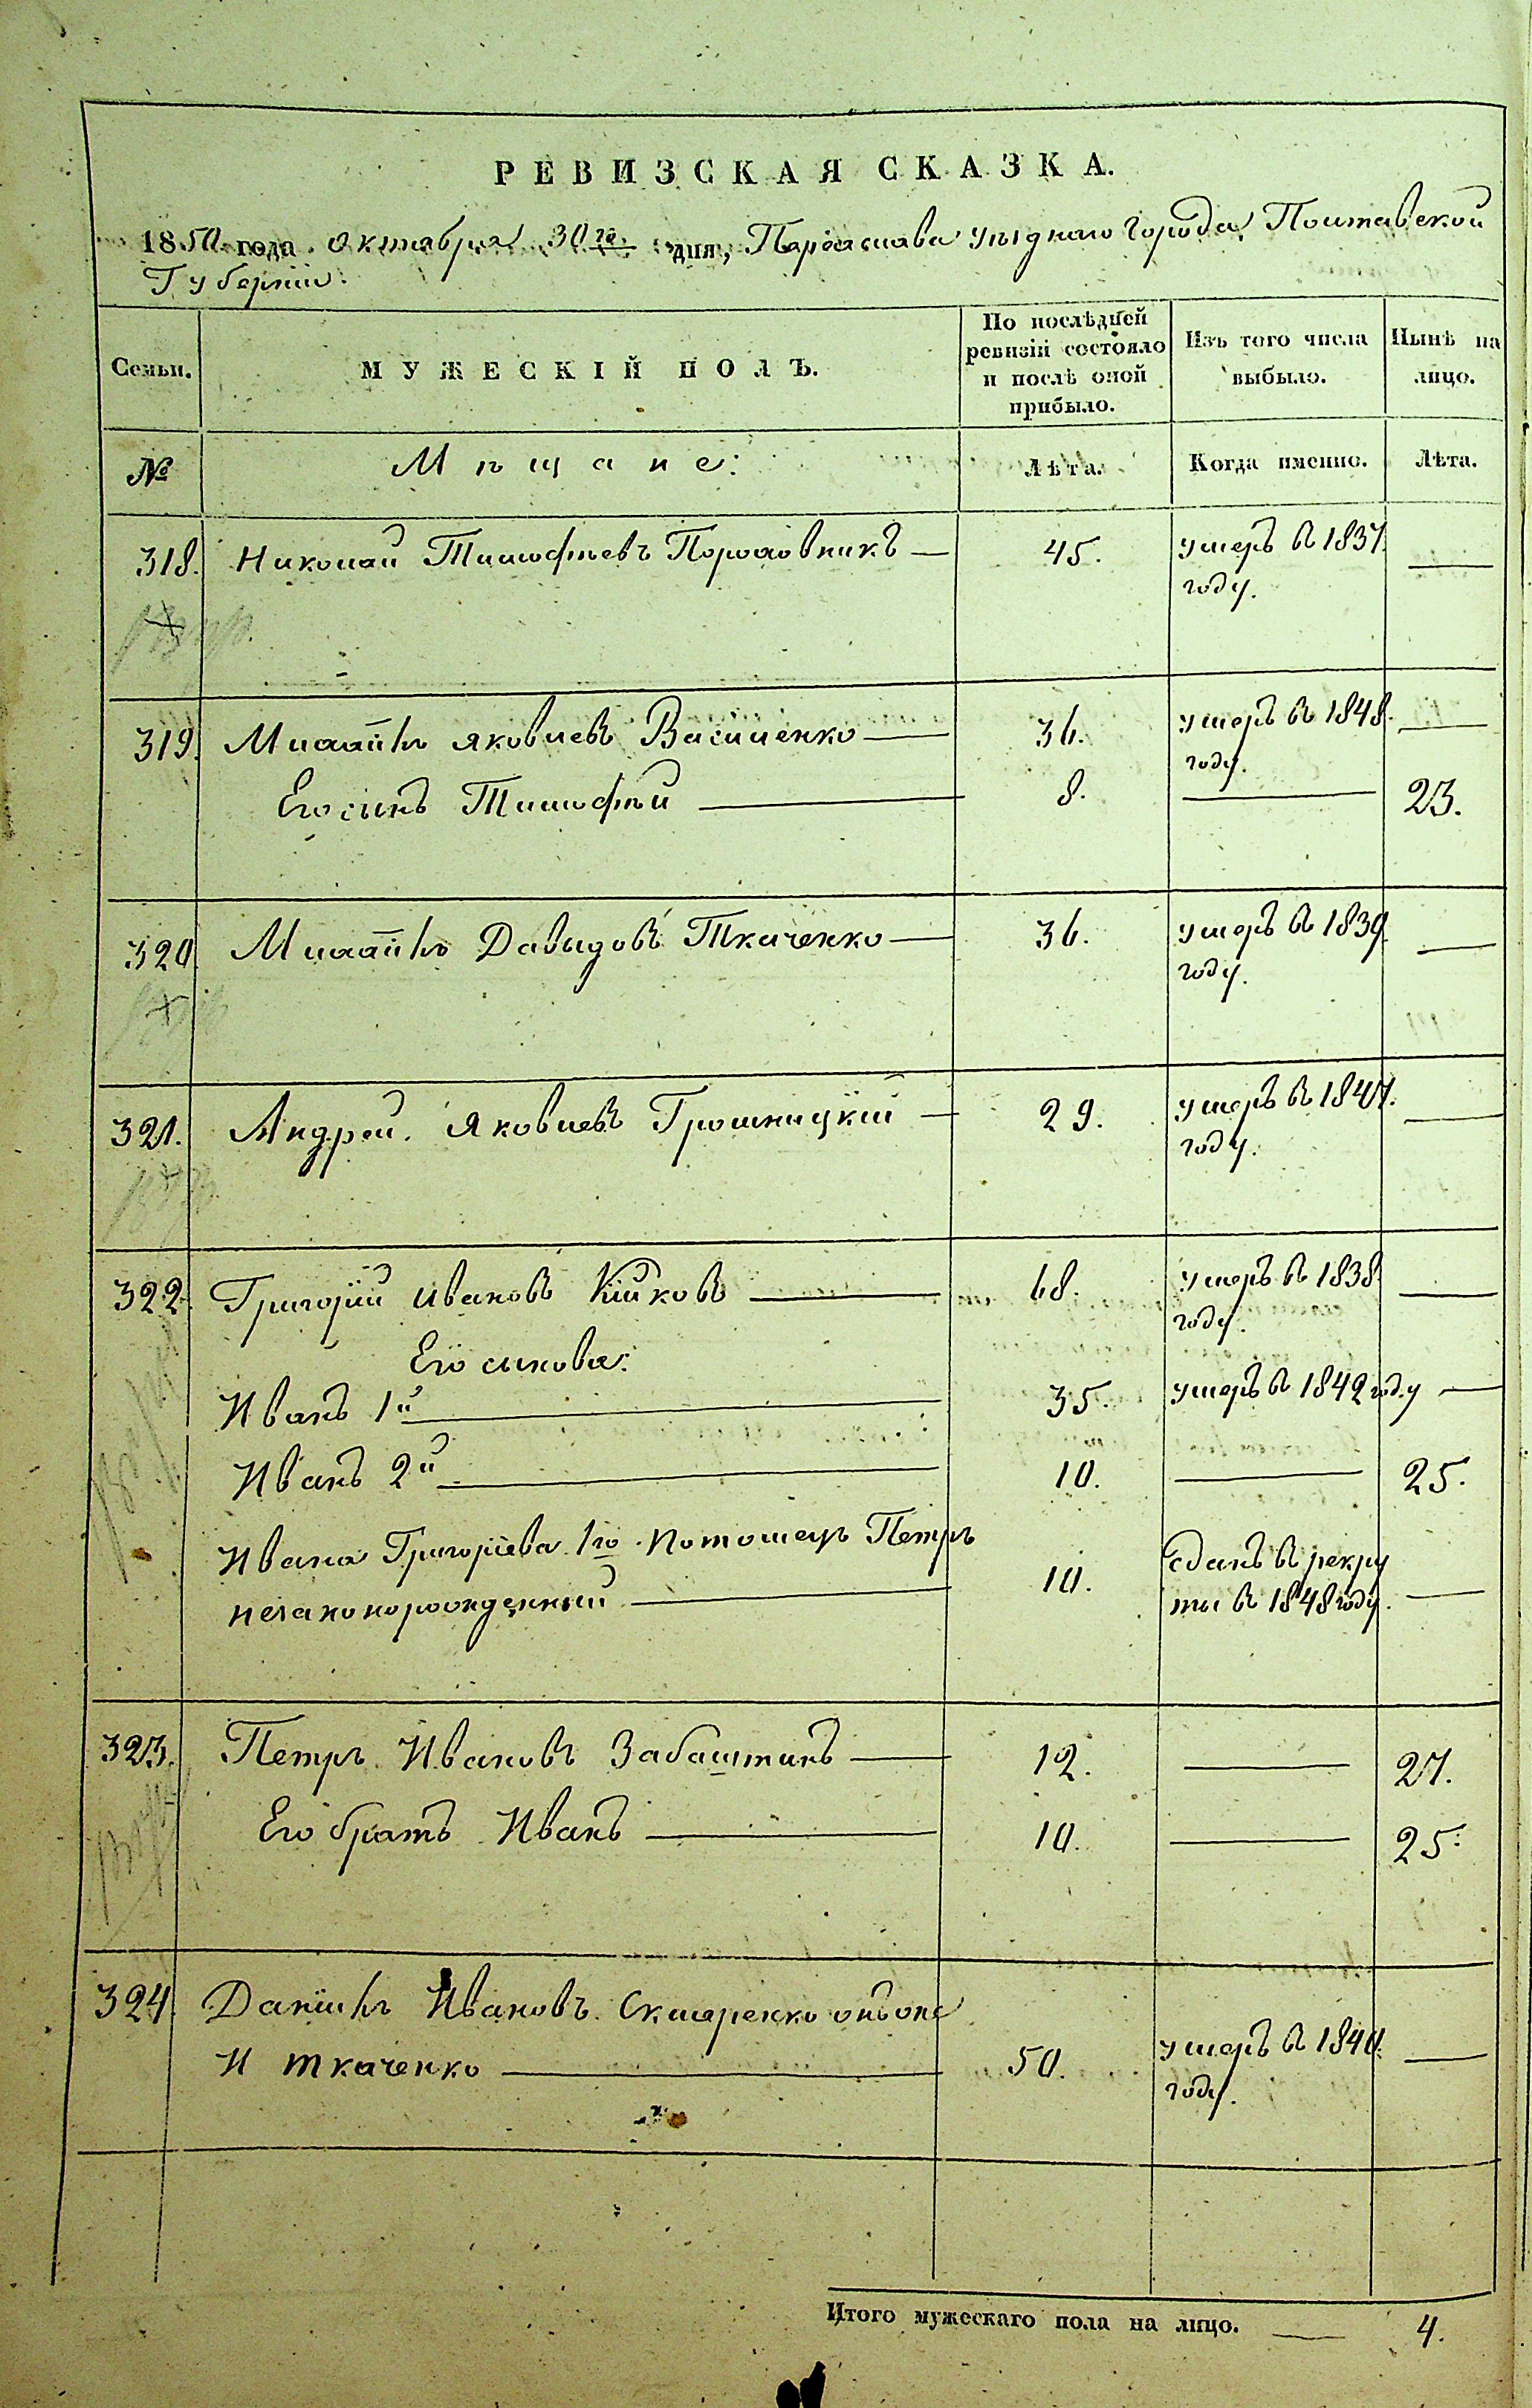 РЕВИЗСКАЯ СКАЗКА.
1850 года октября 30го дня, Переяслава уѣзднаго города, Полтавской
Губерніи.
Семьи. МУЖЕСКІЙ ПОЛЪ. По послѣдней ревизіи состояло и послѣ оной прибыло. Изъ того числа выбыло. Нынѣ на лицо.
№ Мѣщане: Лѣта. Когда именно. Лѣта.
318. Николай Тимофѣевъ — 45. умеръ въ 1837. —
году.
319. Михайло Яковлевъ Василенко — 36. умеръ въ 1848. —
году.
Его сынъ Тимофѣй — 8. — 23.
320. Михайло Давыдовъ Ткаченко — 36. умеръ въ 1839. —
году.
321. Андрей Яковлевъ — 29. умеръ въ 1847. —
году.
322. Григорій Ивановъ Кійковъ — 68. умеръ въ 1838. —
году.
Его сынова:
Иванъ 1й — 35. умеръ въ 1842 году —
Иванъ 2й — 10. — 25.
Ивана Григоріева 1го Петръ
незаконорожденный — 10. сданъ въ рекру
ты въ 1848 году. —
323. Петръ Ивановъ Забаштинъ — 12. — 27.
Его братъ Иванъ — 10. — 25.
324. Данило Ивановъ Скляренко онъ же
и Ткаченко — 50. умеръ въ 1840. —
году.
Итого мужескаго пола на лицо. — 4.